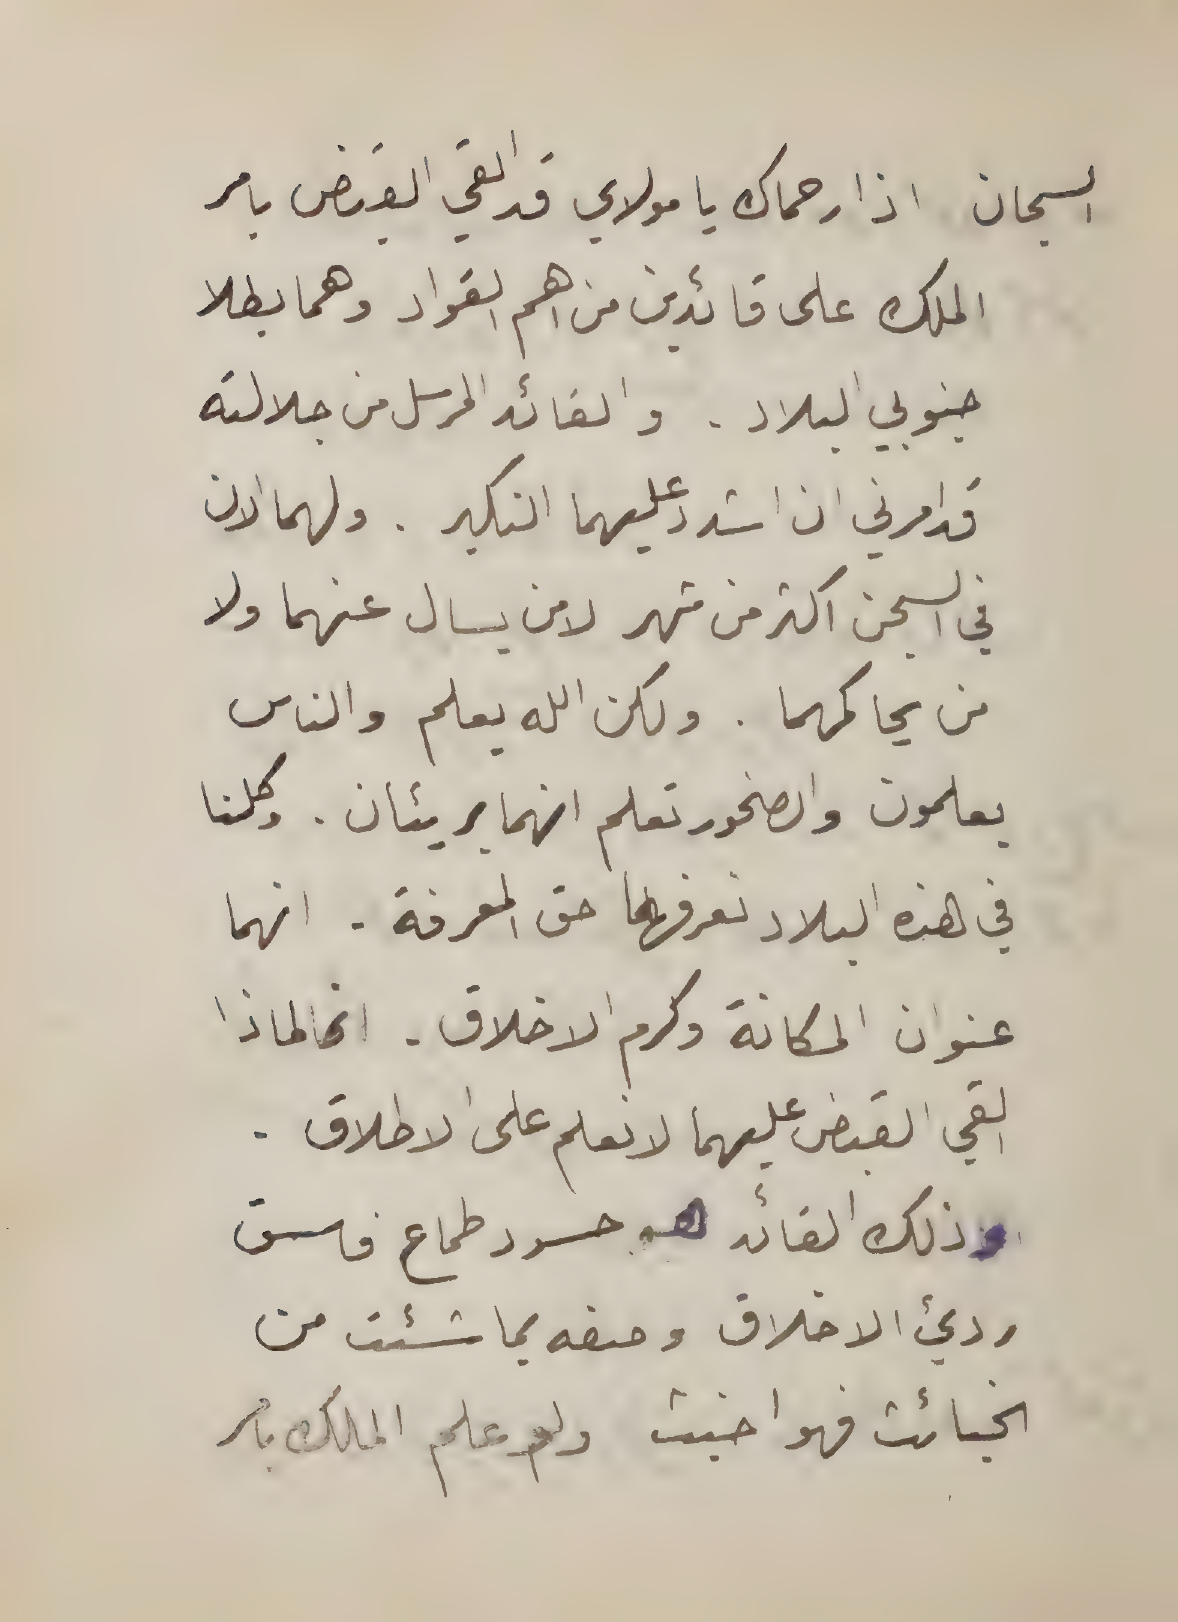 السجان . اذا رحماك يا مولاي قد القي القبض بامر
الملك على قائدين من اهم القواد وهما بطلا
جنوبي البلاد . والقائد المرسل من جلالته
قد امرني ان اشدد عليهما النكير . ولهما الان
في السجن اكثر من شهر لا من يسال عنهما ولا
من يحاكمهما . ولكن الله يعلم والناس
يعلمون والصخور تعلم انهما بريئان . وكلنا
في هذه البلاد نعرفهما حق المعرفة . انهما
عنوان المكانة وكرم الاخلاق . انما لماذا
القي القبض عليهما لا نعلم على الاطلاق .
وذلك القائد هو حسود طماع فاسق
رديئ الاخلاق وصفه بما شئت من
الخبائث فهو اخبث ولو علم الملك بامر